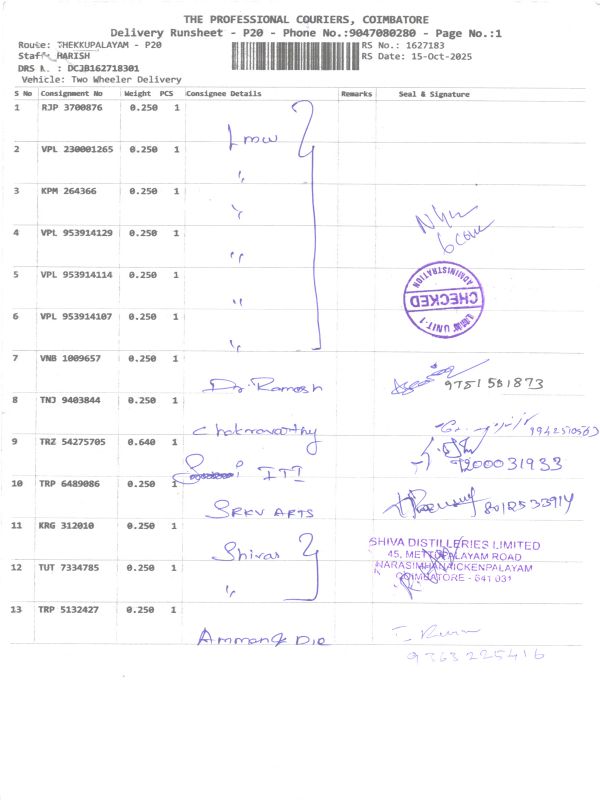 THE PROFESSIONAL COURIERS, COIMBATORE
Delivery Runsheet - P20 - Phone No.:9047080280 - Page No.:1
Route: THEKKUPALAYAM - P20
RS No.: 1627183
Staff: HARISH
RS Date: 15-Oct-2025
DRS No. : DCJB162718301
Vehicle: Two Wheeler Delivery
S No Consignment No Weight PCS Consignee Details Remarks Seal & Signature
1 RJP 3700876 0.250 1
Lmw
2 VPL 230001265 0.250 1
"
3 KPM 264366 0.250 1
"
4 VPL 953914129 0.250 1
"
5 VPL 953914114 0.250 1
"
ADMINISTRATION
CHECKED
UNIT-1
6 VPL 953914107 0.250 1
"
7 VNB 1009657 0.250 1
Dr. Ramesh 9751581873
8 TNJ 9403844 0.250 1
Chakravarthy
9 TRZ 54275705 0.640 1
ITI 9200031933
10 TRP 6489086 0.250 1
SRKV ARTS 8012533914
11 KRG 312010 0.250 1
Shivas
SHIVA DISTILLERIES LIMITED
45, METTUPALAYAM ROAD
NARASIMHANAICKENPALAYAM
COIMBATORE - 641 031
12 TUT 7334785 0.250 1
"
13 TRP 5132427 0.250 1
Amman Die
9363225416